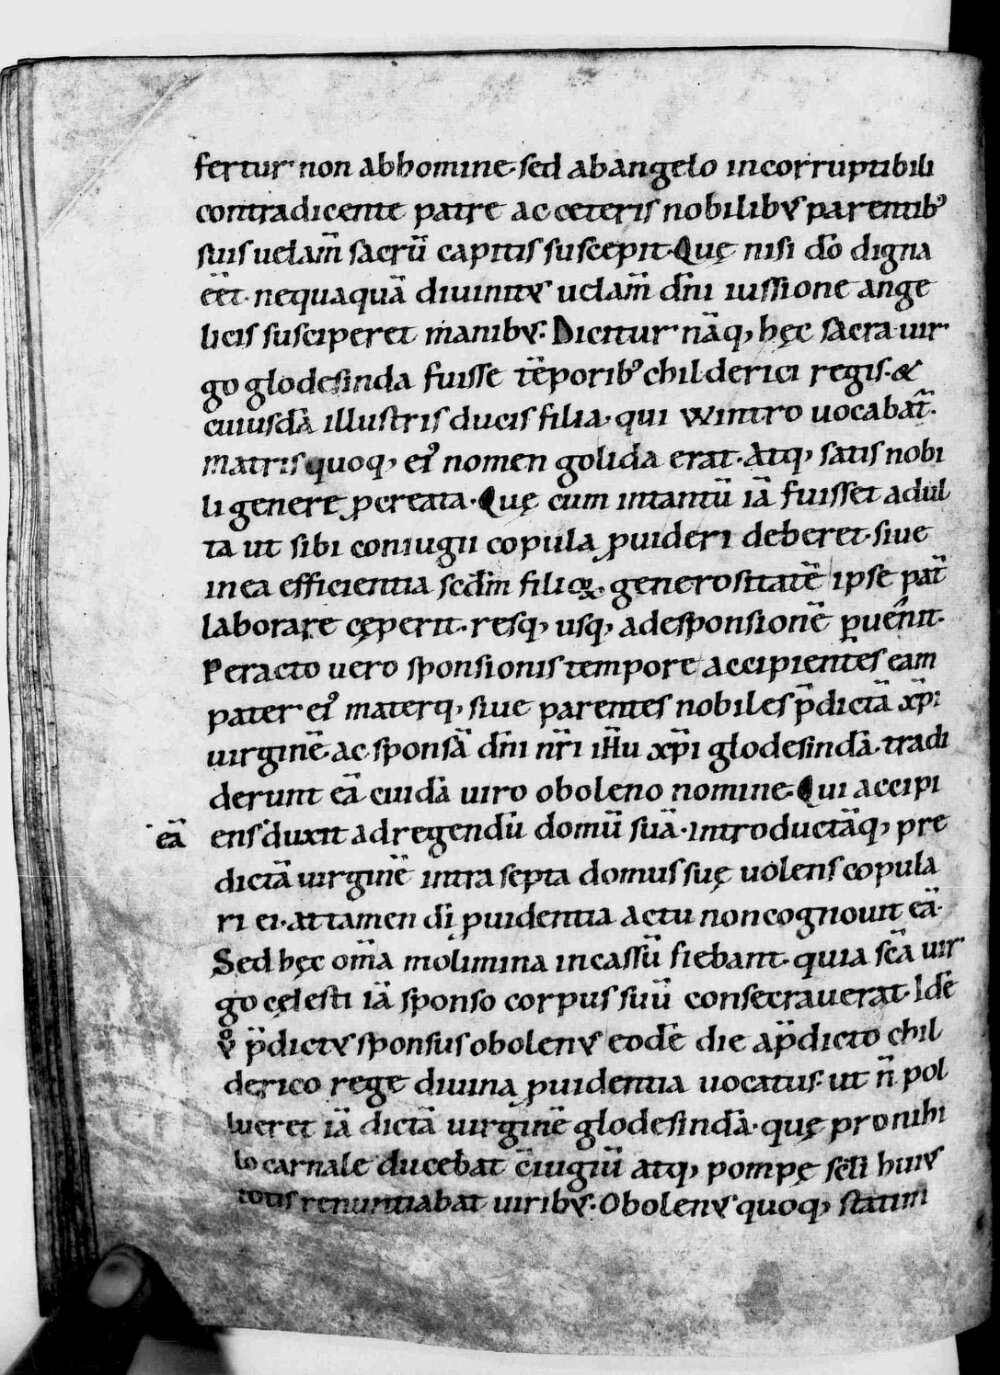 fertur non abhomine· sed abangelo incorruptibili
contradicente patre ac ceteris nobilibus parentib᾽
suis uelam̄ sacrū capitis suscepit· Quę nisi dō digna
ēēt· nequaquā diuinitus uelam̄ dn̄i iussione ange
licis susciperet manibus: Dicitur nāq, hęc sacra uir
go glodesinda fuisse tēporib᾽ childerici regis· &
cuiusdā illustris ducis filia· qui wintro uocabat̄·
matris quoq, ei᾽ nomen golida erat· Atq, satis nobi
li genere ꝓcreata· Quę cum intantū iā fuisset adul
ta ut sibi coniugii copula ꝓuideri deberet· siue
inea efficientia scd̄m filięq, generositatē ipse pat̄
laborare cęperit· resq, usq, adesponsionē ꝑuen̄it·
Peracto uero sponsionis tempore accipientes eam
pater ei᾽ materq, siue parentes nobiles p̄dictā xp̄i
uirginē· ac sponsā dn̄i nr̄i ih̄u xp̄i glodesindā· tradi
derunt eā cuidā uiro oboleno nomine· Qui accipi
eā ens duxit adregendū domū suā· introductāq, pre
dictā uirginē intra septa domus suę uolens copula
ri ei· attamen dī ꝓuidentia actu noncognouit eā·
Sed hęc om̄a molimina incassū fiebant· quia scā uir
go cęlesti iā sponso corpus suū consecrauerat· Idē
ů p̄dictus sponsus obolenus eodē die ap̄dicto chil
derico rege diuina ꝓuidentia uocatus· ut n̄ pol
lueret iā dictā uirginē glodesindā· quę pro nihi
lo carnale ducebat c̄iugiū atq, pompę scl̄i huius
totis renuntiabat uiribus· Obolenus quoq, statim